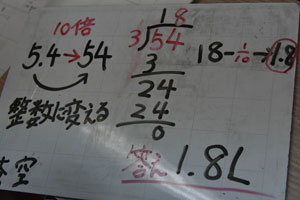 10倍
5.4→54
整数に変える
18
3)54
3
24
24
0
18-1/10→1.8
答え 1.8L